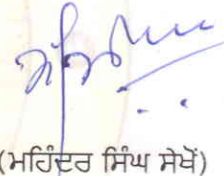 (ਮਹਿੰਦਰ ਸਿੰਘ ਸੇਖੋਂ)